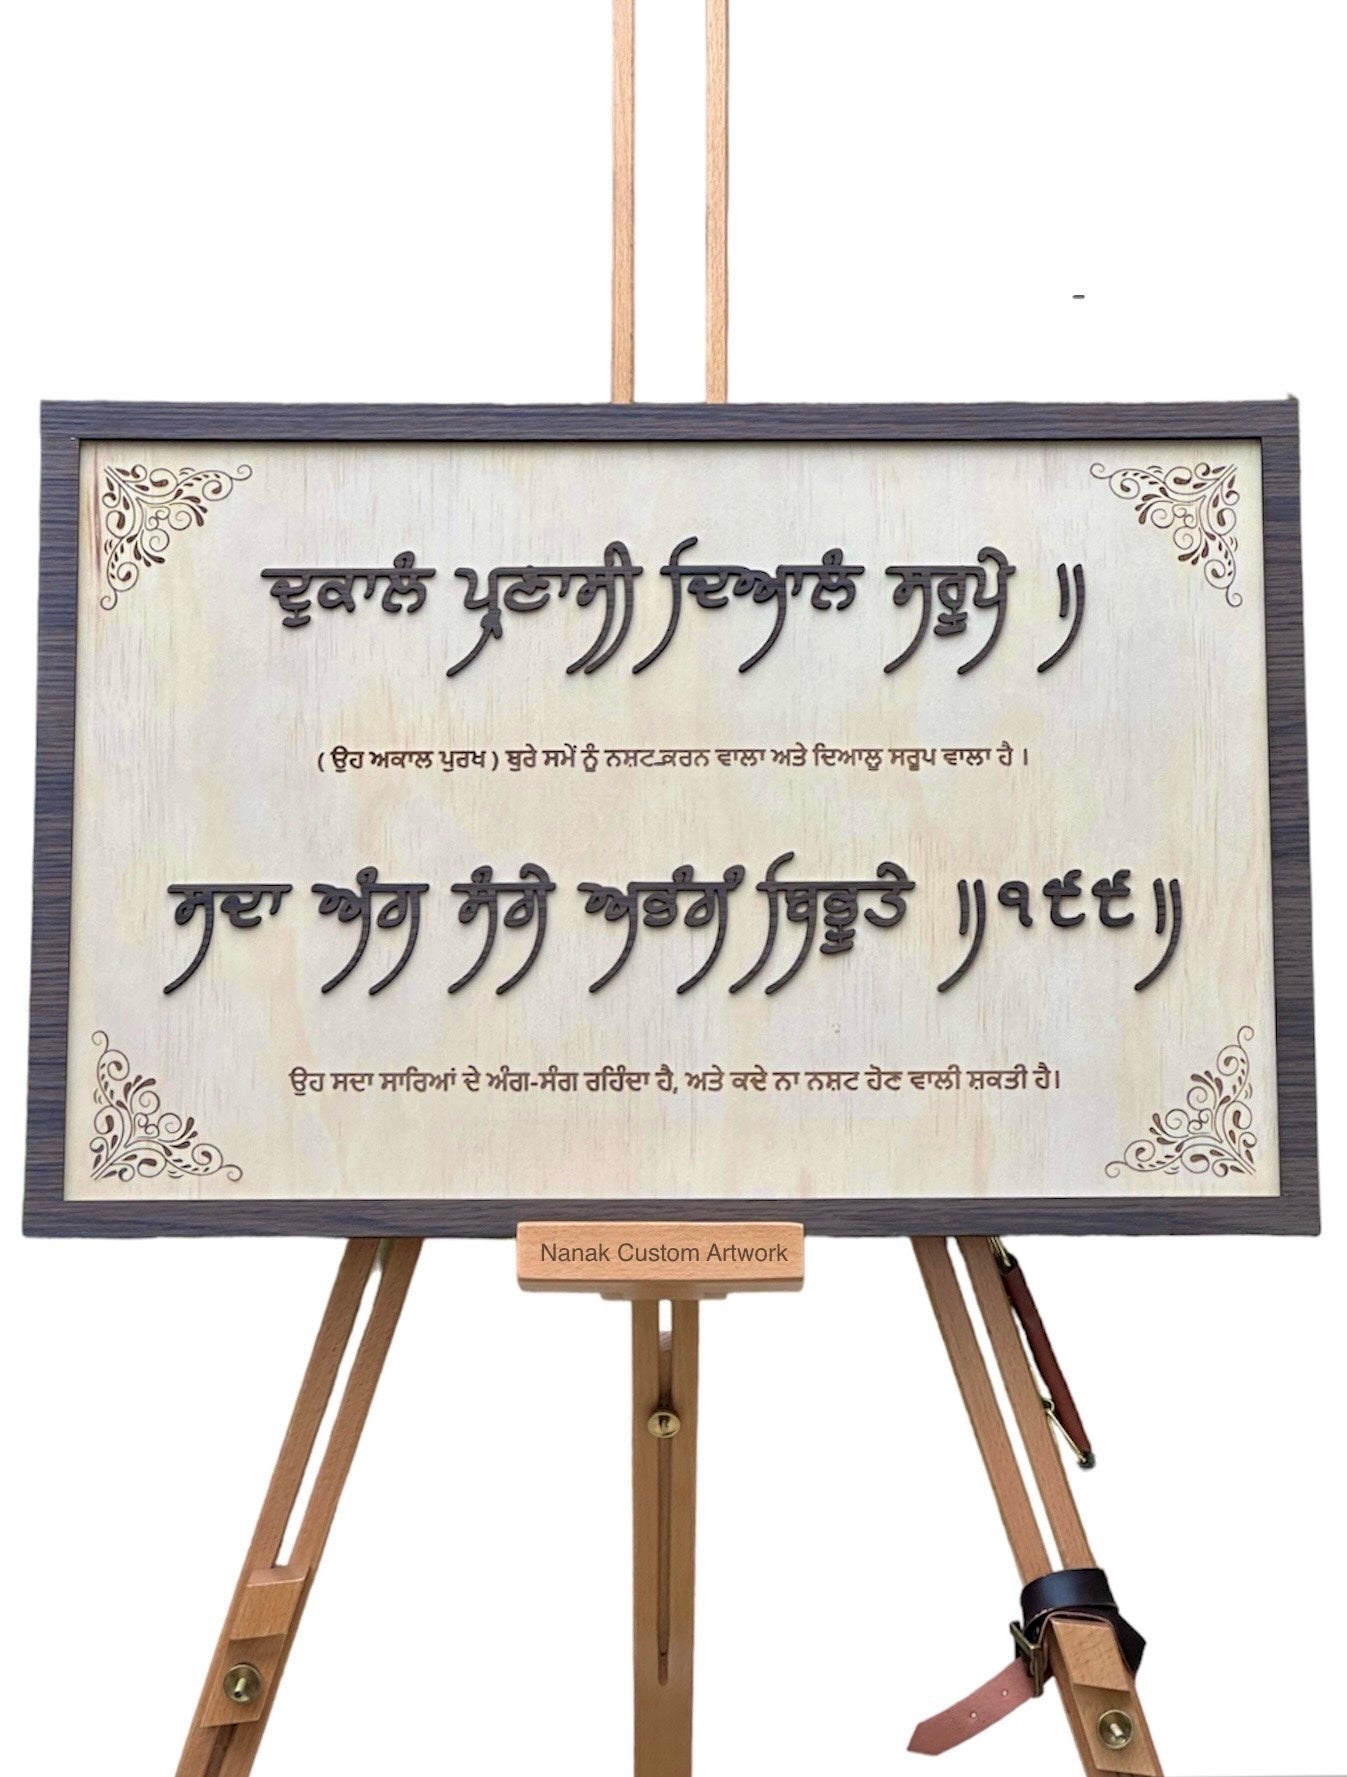 ਦੁਕਾਲੰ ਪ੍ਰਣਾਸੀ ਦਿਆਲੰ ਸਰੂਪੇ ॥
( ਉਹ ਅਕਾਲ ਪੁਰਖ ) ਬੁਰੇ ਸਮੇਂ ਨੂੰ ਨਸ਼ਟ ਕਰਨ ਵਾਲਾ ਅਤੇ ਦਿਆਲੁ ਸਰੂਪ ਵਾਲਾ ਹੈ ।
ਸਦਾ ਅੰਗ ਸੰਗੇ ਅਭੰਗੰ ਬਿਭੂਤੇ ॥੧੯੯॥
ਉਹ ਸਦਾ ਸਾਰਿਆਂ ਦੇ ਅੰਗ-ਸੰਗ ਰਹਿੰਦਾ ਹੈ, ਅਤੇ ਕਦੇ ਨਾ ਨਸ਼ਟ ਹੋਣ ਵਾਲੀ ਸ਼ਕਤੀ ਹੈ।
Nanak Custom Artwork